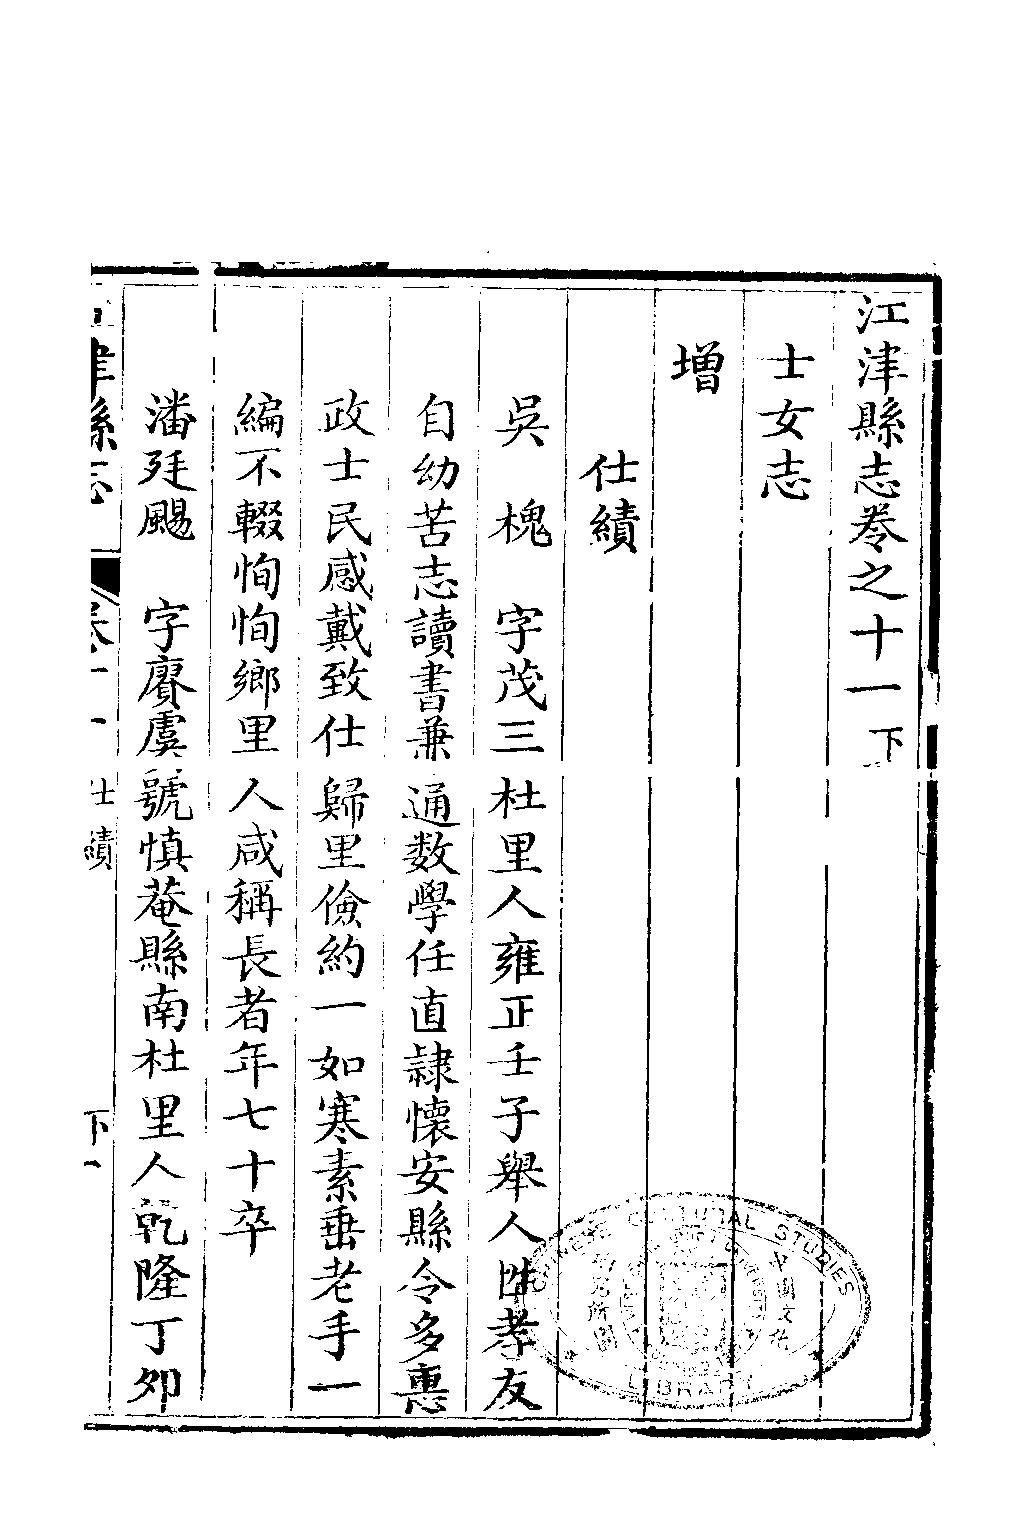 江津縣志卷之十一下
士女志
增
仕績
吳槐 字茂三杜里人雍正壬子舉人性孝友
自幼苦志讀書兼通数學任直隸懷安縣令多惠
政士民感戴致仕歸里儉約一如寒素垂老手一
編不輟恂恂鄉里人咸稱長者年七十卒
潘廷颺 字賡虞號慎菴縣南杜里人乾隆丁夘
江津縣志 卷十一 仕績 下一
CHINESE CULTURAL STUDIES
LIBRARY